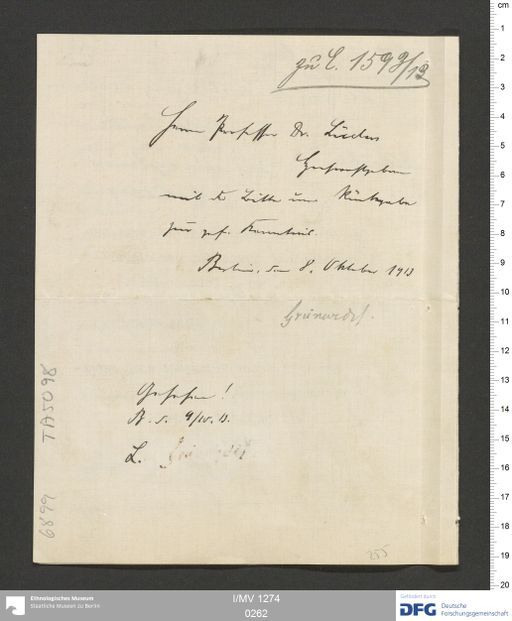 zu E. 1593/13
Herrn Professor Dr. Lüders
Hochwohlgeboren
mit der Bitte um Rückgabe
zur gef. Kenntnis.
Berlin, den 8. Oktober 1913
Grünwedel.
Gesehen!
B. d. 9/10. 13.
L.
TA5098
6899
255
Ethnologisches Museum
Staatliche Museen zu Berlin
I/MV 1274
0262
Gefördert durch
DFG Deutsche
Forschungsgemeinschaft
cm
1
2
3
4
5
6
7
8
9
10
11
12
13
14
15
16
17
18
19
20